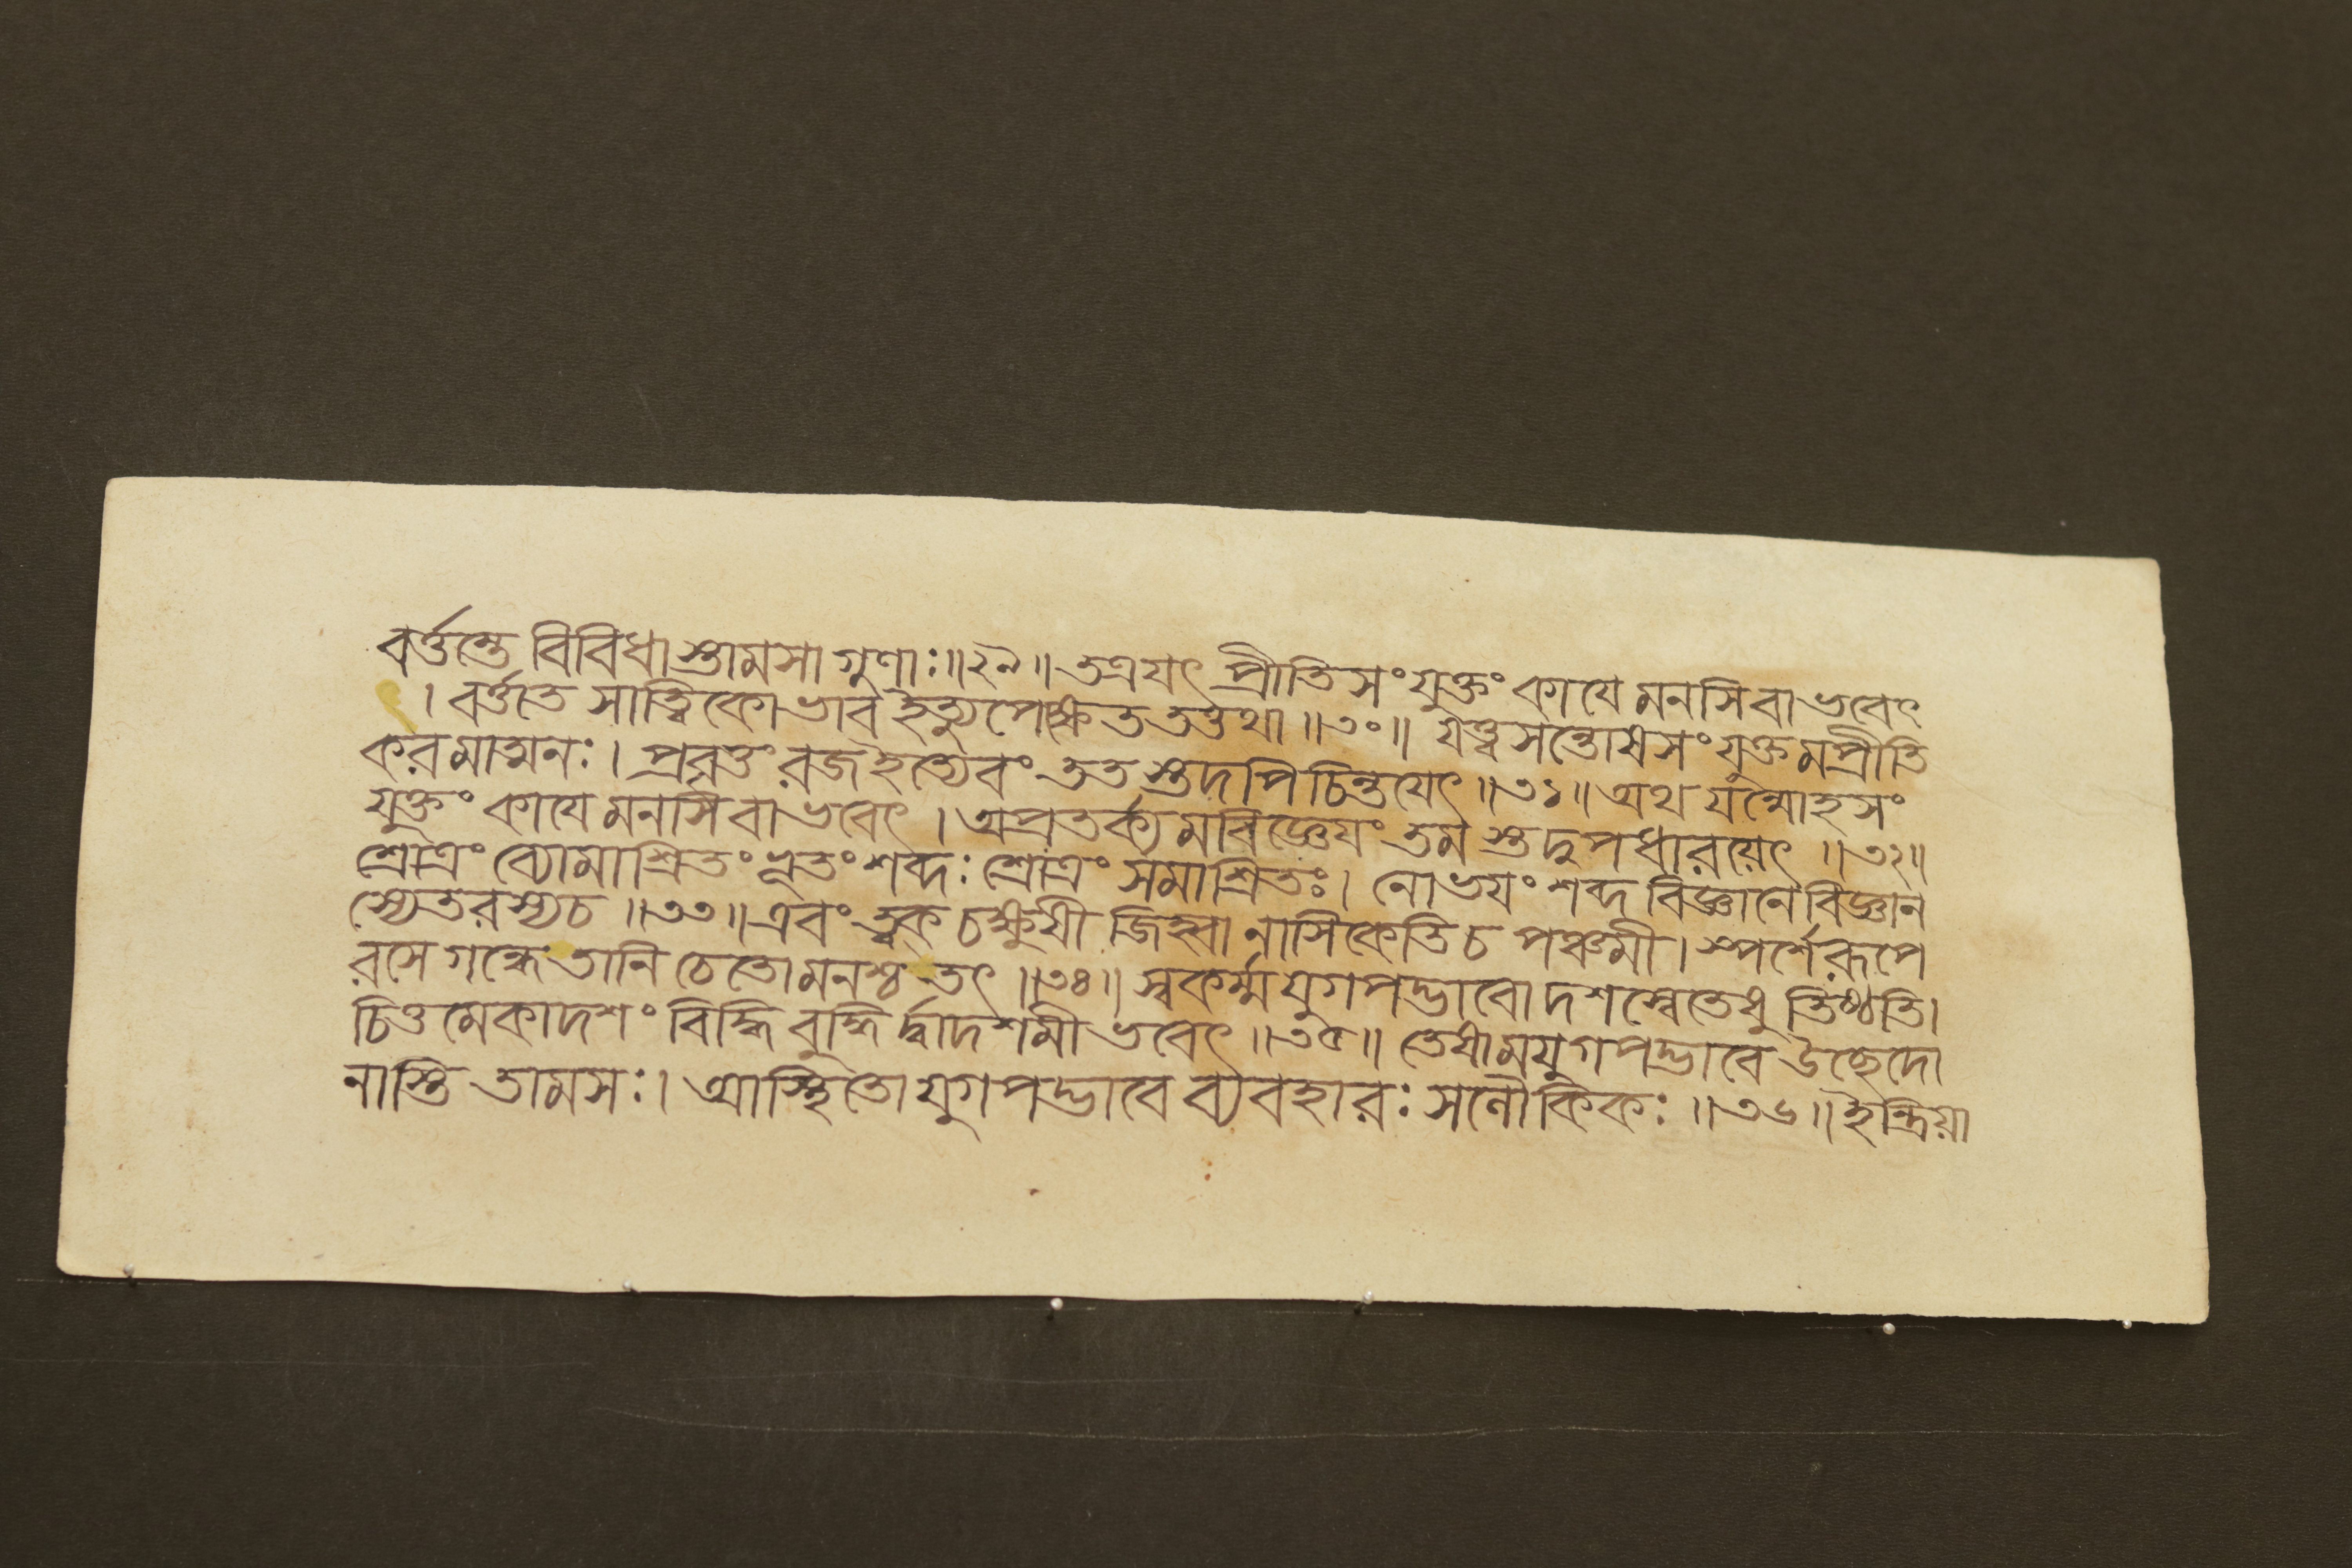 বর্ত্তন্তে বিবিধাস্তামসা গুণাঃ॥২৯॥ তত্রযৎ প্রীতিসংযুক্তং কাযে মনসি বা ভবেৎ
। বর্ত্ততে সাত্ত্বিকো ভাব ইত্যুপেক্ষেত তত্তথা॥৩০॥ যত্ত্বসন্তোষসংযুক্তমপ্রীতি
করমাত্মনঃ। প্রবৃত্তং রজ ইত্যেবং তত স্তদপি চিন্তযেৎ॥৩১॥ অথ যন্মোহসং
যুক্তং কাযে মনসি বা ভবেৎ। অপ্রতর্ক্যমবিজ্ঞেযং তমস্তদুপধারয়েৎ॥৩২॥
শ্রোত্রং ব্যোমাশ্রিতং ভূতং শব্দঃ শ্রোত্রং সমাশ্রিতঃ। নোভযং শব্দ বিজ্ঞানে বিজ্ঞান
স্যেতরস্যচ॥৩৩॥ এবং ত্বক চক্ষুষী জিহ্বা নাসিকেতি চ পঞ্চমী। স্পর্শে রূপে
রসে গন্ধে তানি চেতো মনশ্চ তৎ॥৩৪॥ স্বকর্ম্ম যুগপদ্ভাবো দশস্বেতেষু তিষ্ঠতি।
চিত্তমেকাদশং বিদ্ধি বুদ্ধি র্দ্বাদশমী ভবেৎ॥৩৫॥ তেষামযুগপদ্ভাবে উচ্ছেদো
নাস্তি তামসঃ। আস্থিতো যুগপদ্ভাবে ব্যবহারঃ সলৌকিকঃ॥৩৬॥ ইন্দ্রিয়া